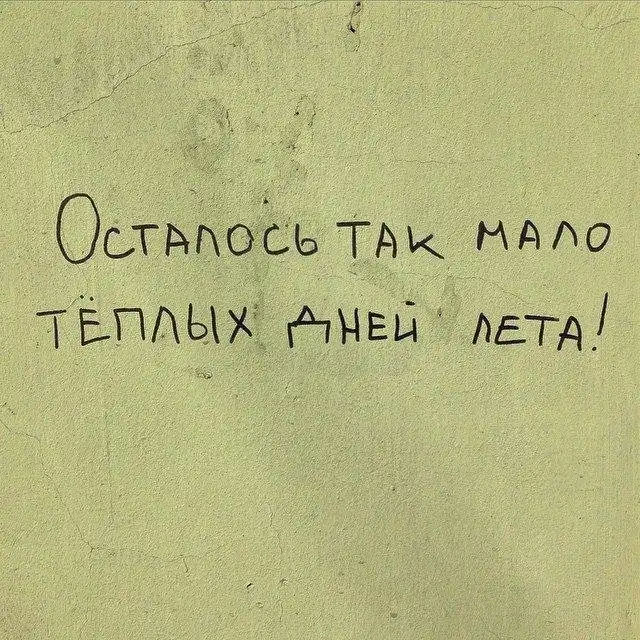 Осталось так мало
тёплых дней лета!